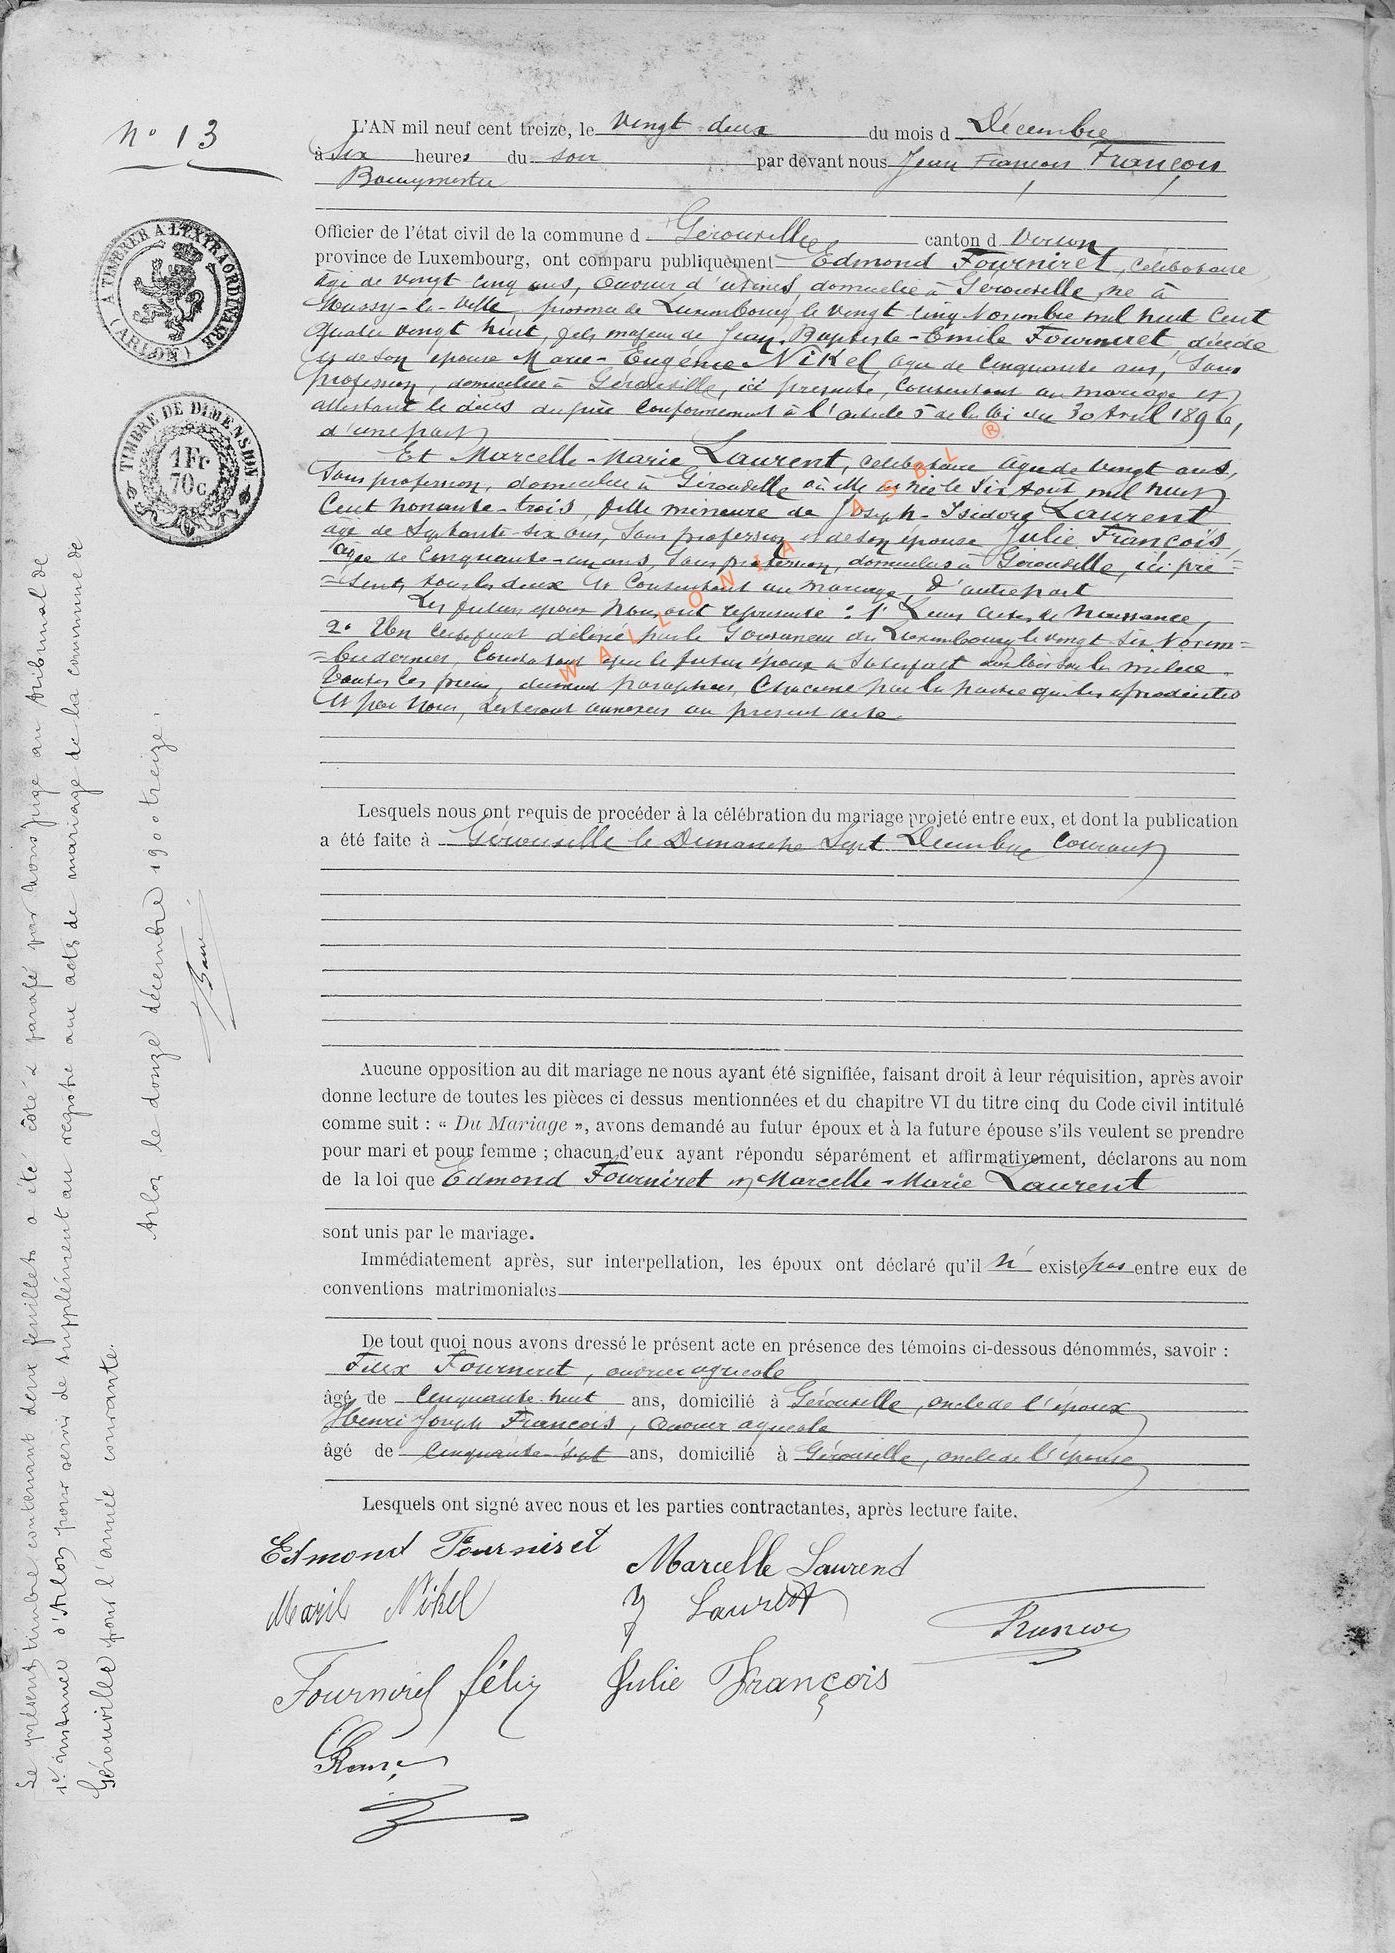 N° 13
L'AN mil neuf cent treize, le vingt deux du mois d Décembre
à Six heures du soir par devant nous Jean François François
Bourgmestre
Officier de l'état civil de la commune d Gérouville canton d Virton
province de Luxembourg, ont comparu publiquement Edmond Fourniret, célibataire
âgé de vingt cinq ans, ouvrier d'usines, domicilié à Gérouville, né à
Mussy-la-Ville, province de Luxembourg le vingt cinq Novembre mil huit Cent
quatre vingt huit, fils majeur de Jean-Baptiste-Emile Fourniret, décédé
et de son épouse Marie-Eugénie Nikel, âgée de Cinquante ans, Sans
profession, domiciliée à Gérouville, ici présente, Consentant au mariage et
attestant le décès du père Conformément à l'article 5 de la loi du 30 Avril 1896,
d'une part
Et Marcelle-Marie Laurent, célibataire âgée de vingt ans,
Sans profession, domiciliée à Gérouville où elle est née le Six Août mil huit
Cent nonante-trois, fille mineure de Joseph-Isidore Laurent
âgé de Septante-six ans, Sans profession et de son épouse Julie François,
âgée de Cinquante-cinq ans, Sans profession, domiciliés à Gérouville, ici pré=
=sents tous les deux et Consentant au mariage, d'autre part
Les futurs époux nous ont représenté : 1° Leurs actes de Naissance,
2° Un Certificat délivré par le Gouverneur du Luxembourg le vingt six Novem=
=bre dernier, Constatant que le futur époux a Satisfait aux lois sur la milice.
Toutes les pièces, dûment paraphées, Chacune par la partie qui les a produites
et par nous, resteront annexées au présent acte.
Lesquels nous ont requis de procéder à la célébration du mariage projeté entre eux, et dont la publication
a été faite à Gérouville le Dimanche Sept Décembre Courant
Aucune opposition au dit mariage ne nous ayant été signifiée, faisant droit à leur réquisition, après avoir
donne lecture de toutes les pièces ci dessus mentionnées et du chapitre VI du titre cinq du Code civil intitulé
comme suit : « Du Mariage », avons demandé au futur époux et à la future épouse s'ils veulent se prendre
pour mari et pour femme ; chacun d'eux ayant répondu séparément et affirmativement, déclarons au nom
de la loi que Edmond Fourniret et Marcelle-Marie Laurent
sont unis par le mariage.
Immédiatement après, sur interpellation, les époux ont déclaré qu'il n' existe pas entre eux de
conventions matrimoniales
De tout quoi nous avons dressé le présent acte en présence des témoins ci-dessous dénommés, savoir :
Félix Fourniret, ouvrier agricole
âgé de Cinquante-huit ans, domicilié à Gérouville, oncle de l'époux
Henri Joseph François, Ouvrier agricole
âgé de Cinquante-sept ans, domicilié à Gérouville, oncle de l'épouse
Lesquels ont signé avec nous et les parties contractantes, après lecture faite.
Edmond Fourniret
Marcelle Laurent
Marie Nikel
J Laurent
François
Fourniret félix
Julie François
A TIMBRER A L'EXTRAORDINAIRE
(ARLON)
TIMBRE DE DIMENSION
1Fr
70c
Le présent timbre contenant deux feuillets a été côté & parafé par nous Juge au Tribunal de
1e instance d'Arlon pour servir de supplément au registre aux actes de mariage de la commune de
Gérouville pour l'année courante.
Arlon le douze décembre 1900 treize.
WALLONIA ASBL ®